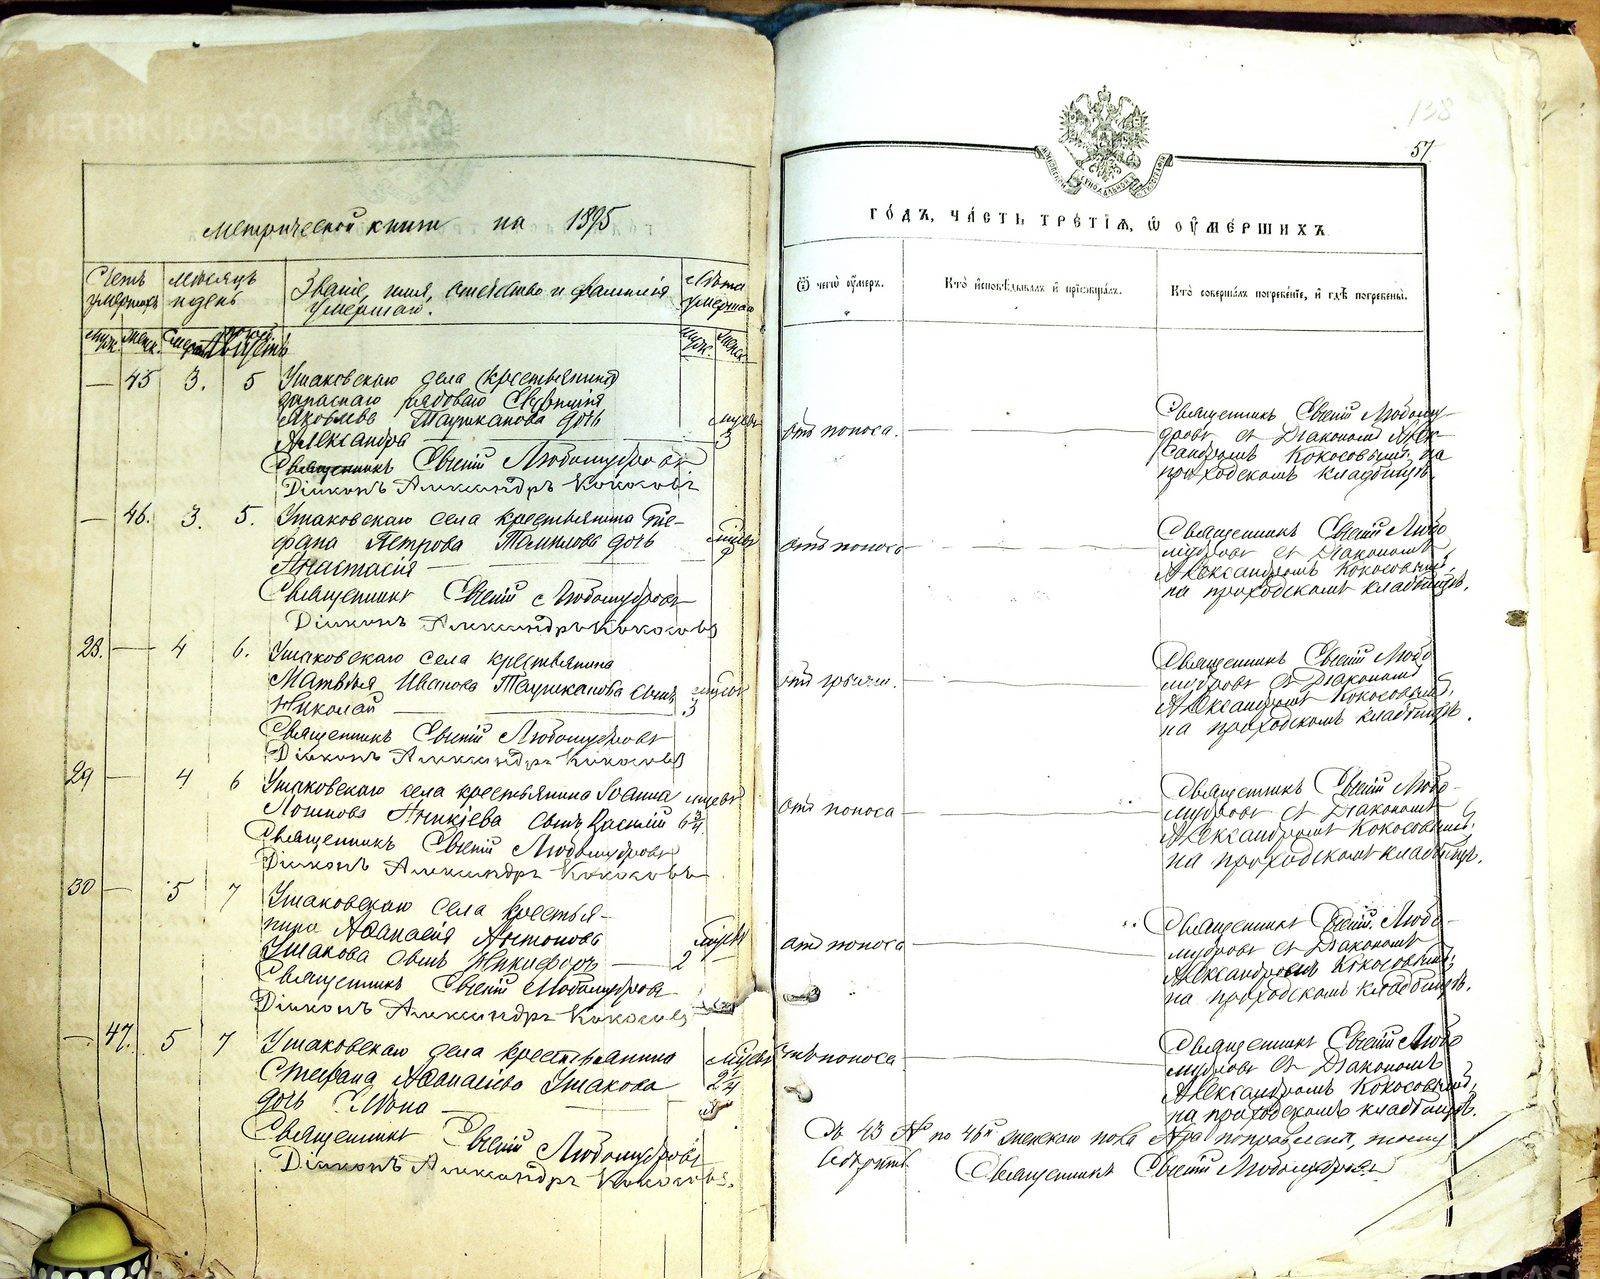 138
57
Метрической книги на 1895
ГОДЪ, ЧАСТЬ ТРЕТІЯ, Ѡ ОУМЕРШИХЪ
Счетъ умершихъ
Мѣсяцъ и день
Званіе, имя, отчество и фамилія умершаго.
Лѣта умершаго
Ѿ чегѡ оумеръ.
Кто исповѣдывалъ и пріѡбщалъ.
Кто совершалъ погребеніе, и гдѣ погребены.
Муж. Женск.
Августъ
Муж. Женск.
— 45 3. 5 Ушаковскаго села крестьянина
запаснаго рядоваго
Яковлева Таушканова дочь
Александра 3
Священникъ Евгеній Любомудровъ
Діаконъ Александръ Кокосовъ
отъ поноса.
Священникъ Евгеній Любому-
дровъ съ Діакономъ Алек-
сандромъ Кокосовымъ, на
приходскомъ кладбищѣ.
— 46. 3. 5. Ушаковскаго села крестьянина Сте-
фана Петрова дочь
Анастасія
Священникъ Евгеній Любомудровъ
Діаконъ Александръ Кокосовъ
отъ поноса
Священникъ Евгеній Любо-
мудровъ съ Діакономъ
Александромъ Кокосовымъ,
на приходскомъ кладбищѣ.
28. — 4 6. Ушаковскаго села крестьянина
Матвѣя Иванова Таушканова сынъ
Николай 3
Священникъ Евгеній Любомудровъ
Діаконъ Александръ Кокосовъ
отъ
Священникъ Евгеній Любо-
мудровъ съ Діакономъ
Александромъ Кокосовымъ,
на приходскомъ кладбищѣ.
29 — 4 6 Ушаковскаго села крестьянина Іоанна
Логинова Аникіева сынъ Василій
Священникъ Евгеній Любомудровъ
Діаконъ Александръ Кокосовъ
отъ поноса
Священникъ Евгеній Любо-
мудровъ съ Діакономъ
Александромъ Кокосовымъ,
на приходскомъ кладбищѣ.
30 — 5 7 Ушаковскаго села крестья-
нина Аѳанасія Антонова
Ушакова сынъ Никифоръ — 2
Священникъ Евгеній Любомудровъ
Діаконъ Александръ Кокосовъ
отъ поноса
Священникъ Евгеній Любо-
мудровъ съ Діакономъ
Александромъ Кокосовымъ,
на приходскомъ кладбищѣ.
— 47. 5 7 Ушаковскаго села крестьянина
Стефана Аѳанасіева Ушакова
дочь
Священникъ Евгеній Любомудровъ
Діаконъ Александръ Кокосовъ.
отъ поноса
Священникъ Евгеній Любо-
мудровъ съ Діакономъ
Александромъ Кокосовымъ,
на приходскомъ кладбищѣ.
Съ 43 № по 46й женскаго пола
Священникъ Евгеній Любомудровъ